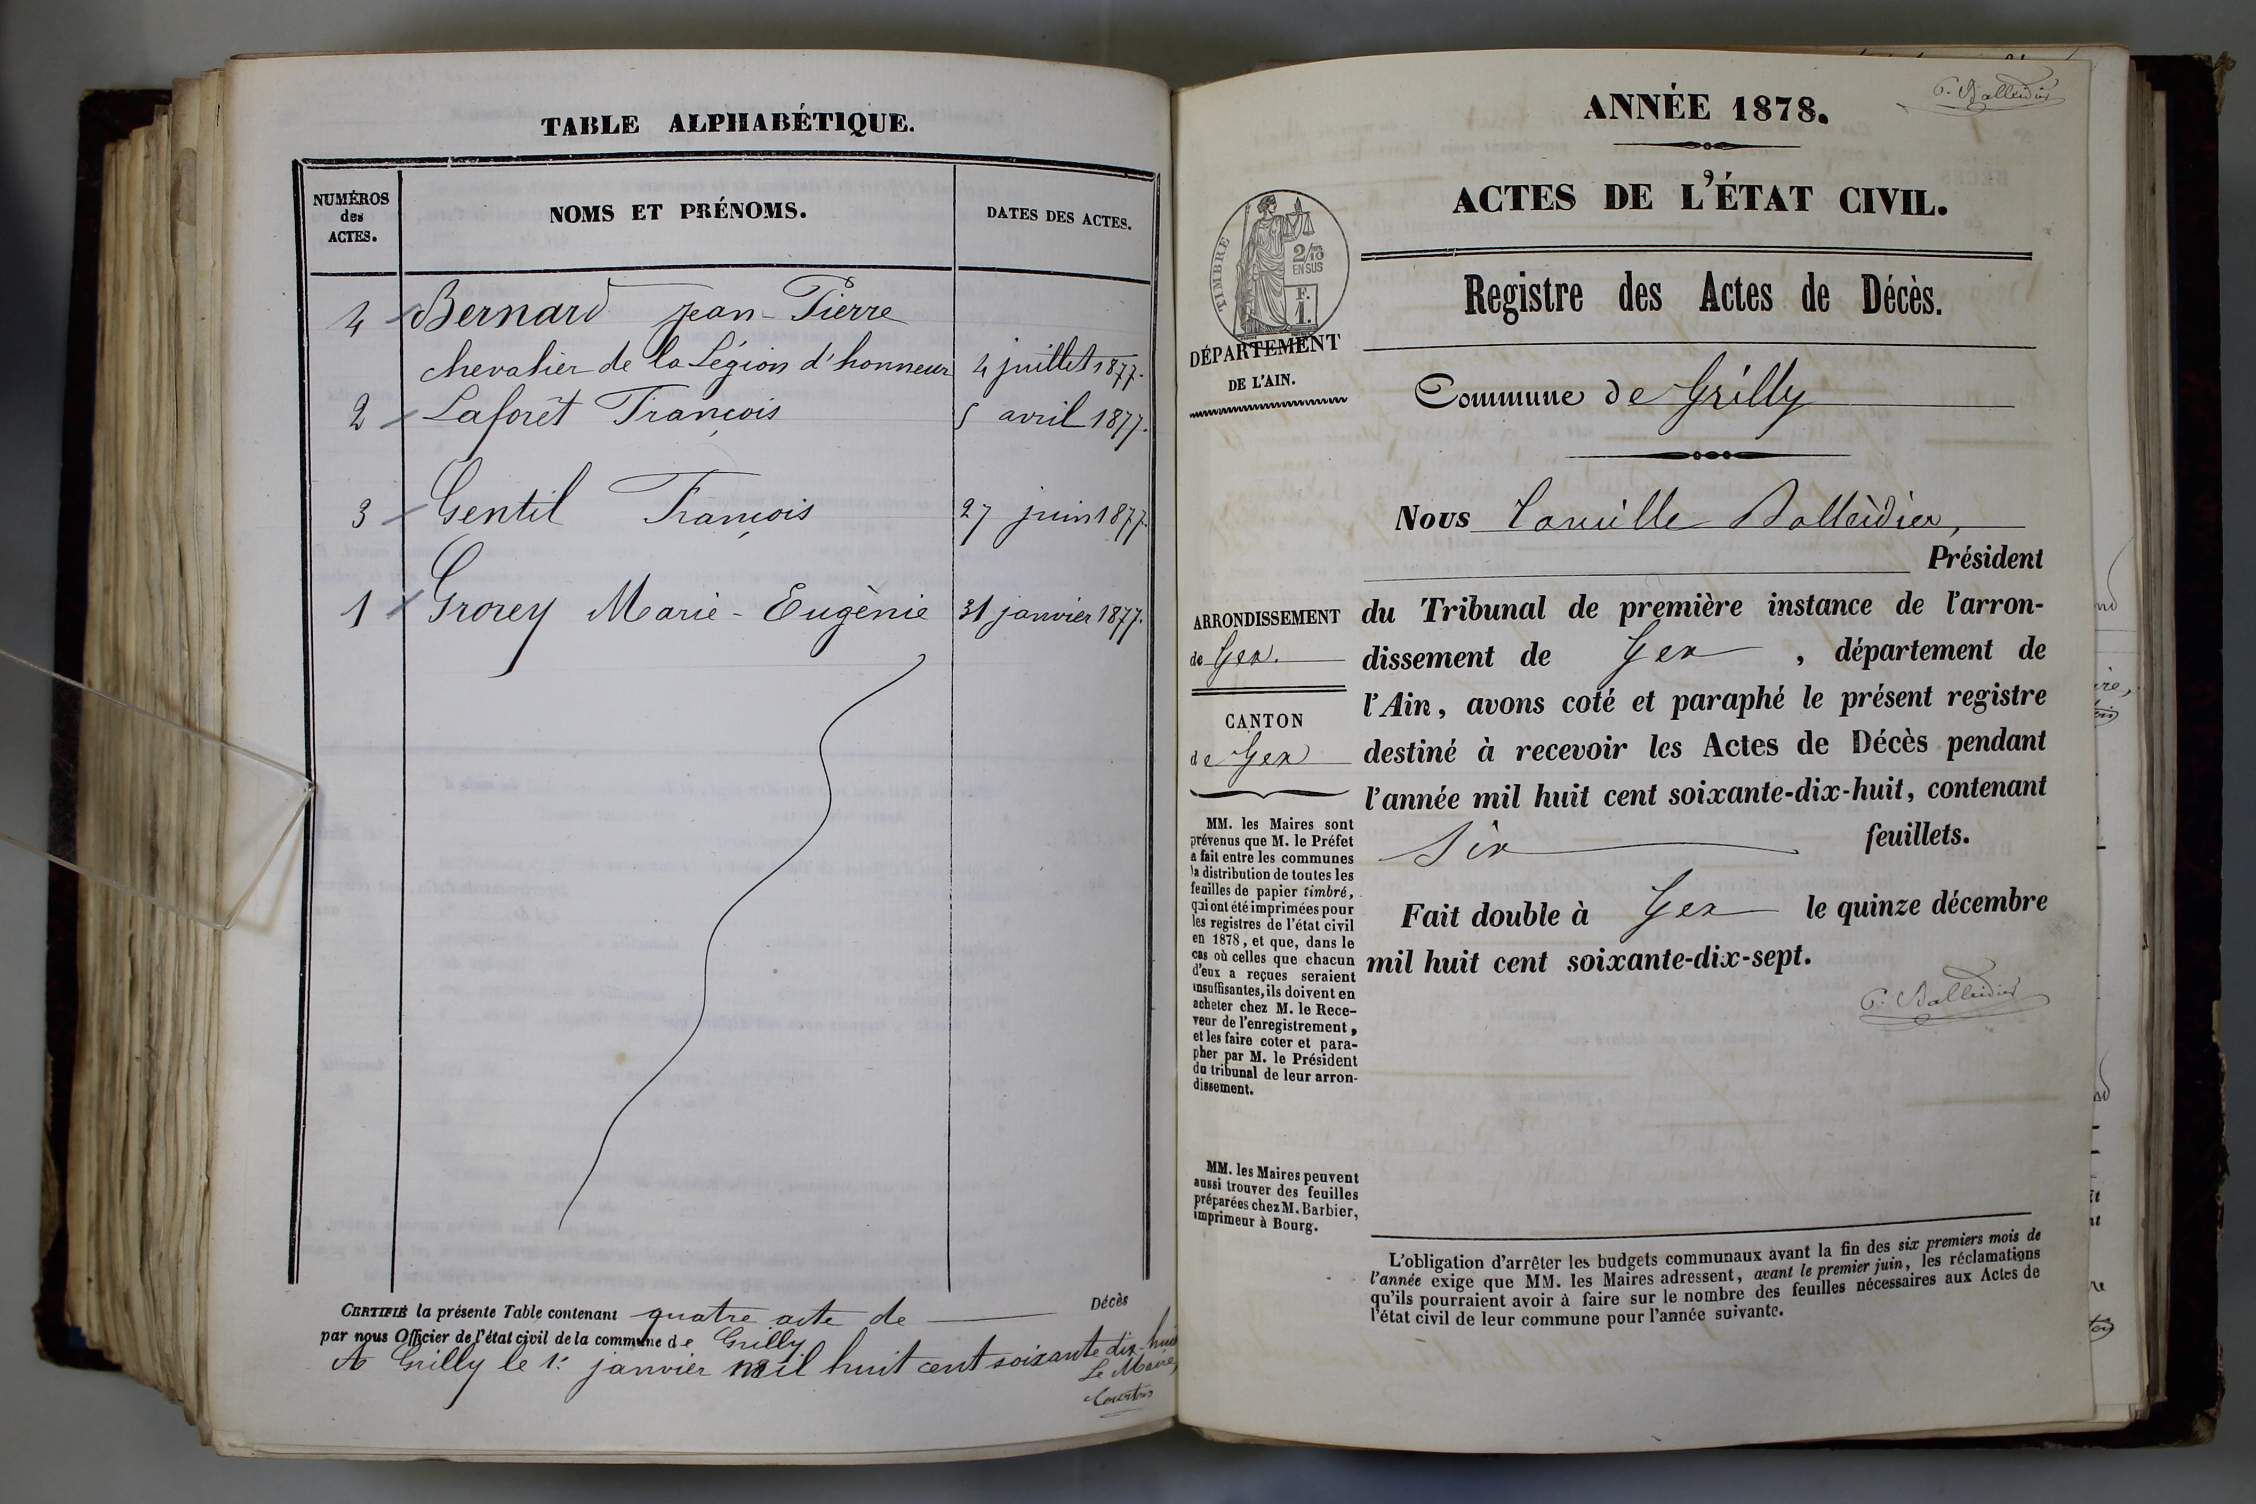 TABLE ALPHABÉTIQUE.
NUMÉROS
des
ACTES.
NOMS ET PRÉNOMS.
DATES DES ACTES.
4 Bernard Jean-Pierre
chevalier de la Légion d'honneur 4 juillet 1877.
2 Laforêt François 5 avril 1877.
3 Gentil François 27 juin 1877.
1 Grorey Marie-Eugènie 31 janvier 1877.
CERTIFIÉ la présente Table contenant quatre acte de Décès
par nous Officier de l'état civil de la commune de Grilly
A Grilly le 1er janvier mil huit cent soixante dix-huit
Le Maire,
ANNÉE 1878.
ACTES DE L'ÉTAT CIVIL.
TIMBRE
2/10
EN SUS
F.
1.
DÉPARTEMENT
DE L'AIN.
Registre des Actes de Décès.
Commune de Grilly
Nous Camille Balleidier,
Président
ARRONDISSEMENT
de Gex.
CANTON
de Gex
du Tribunal de première instance de l'arron-
dissement de Gex, département de
l'Ain, avons coté et paraphé le présent registre
destiné à recevoir les Actes de Décès pendant
l'année mil huit cent soixante-dix-huit, contenant
Six feuillets.
Fait double à Gex le quinze décembre
mil huit cent soixante-dix-sept.
C. Balleidier
MM. les Maires sont
prévenus que M. le Préfet
a fait entre les communes
la distribution de toutes les
feuilles de papier timbré,
qui ont été imprimées pour
les registres de l'état civil
en 1878, et que, dans le
cas où celles que chacun
d'eux a reçues seraient
insuffisantes, ils doivent en
acheter chez M. le Rece-
veur de l'enregistrement,
et les faire coter et para-
pher par M. le Président
du tribunal de leur arron-
dissement.
MM. les Maires peuvent
aussi trouver des feuilles
préparées chez M. Barbier,
imprimeur à Bourg.
L'obligation d'arrêter les budgets communaux avant la fin des six premiers mois de
l'année exige que MM. les Maires adressent, avant le premier juin, les réclamations
qu'ils pourraient avoir à faire sur le nombre des feuilles nécessaires aux Actes de
l'état civil de leur commune pour l'année suivante.